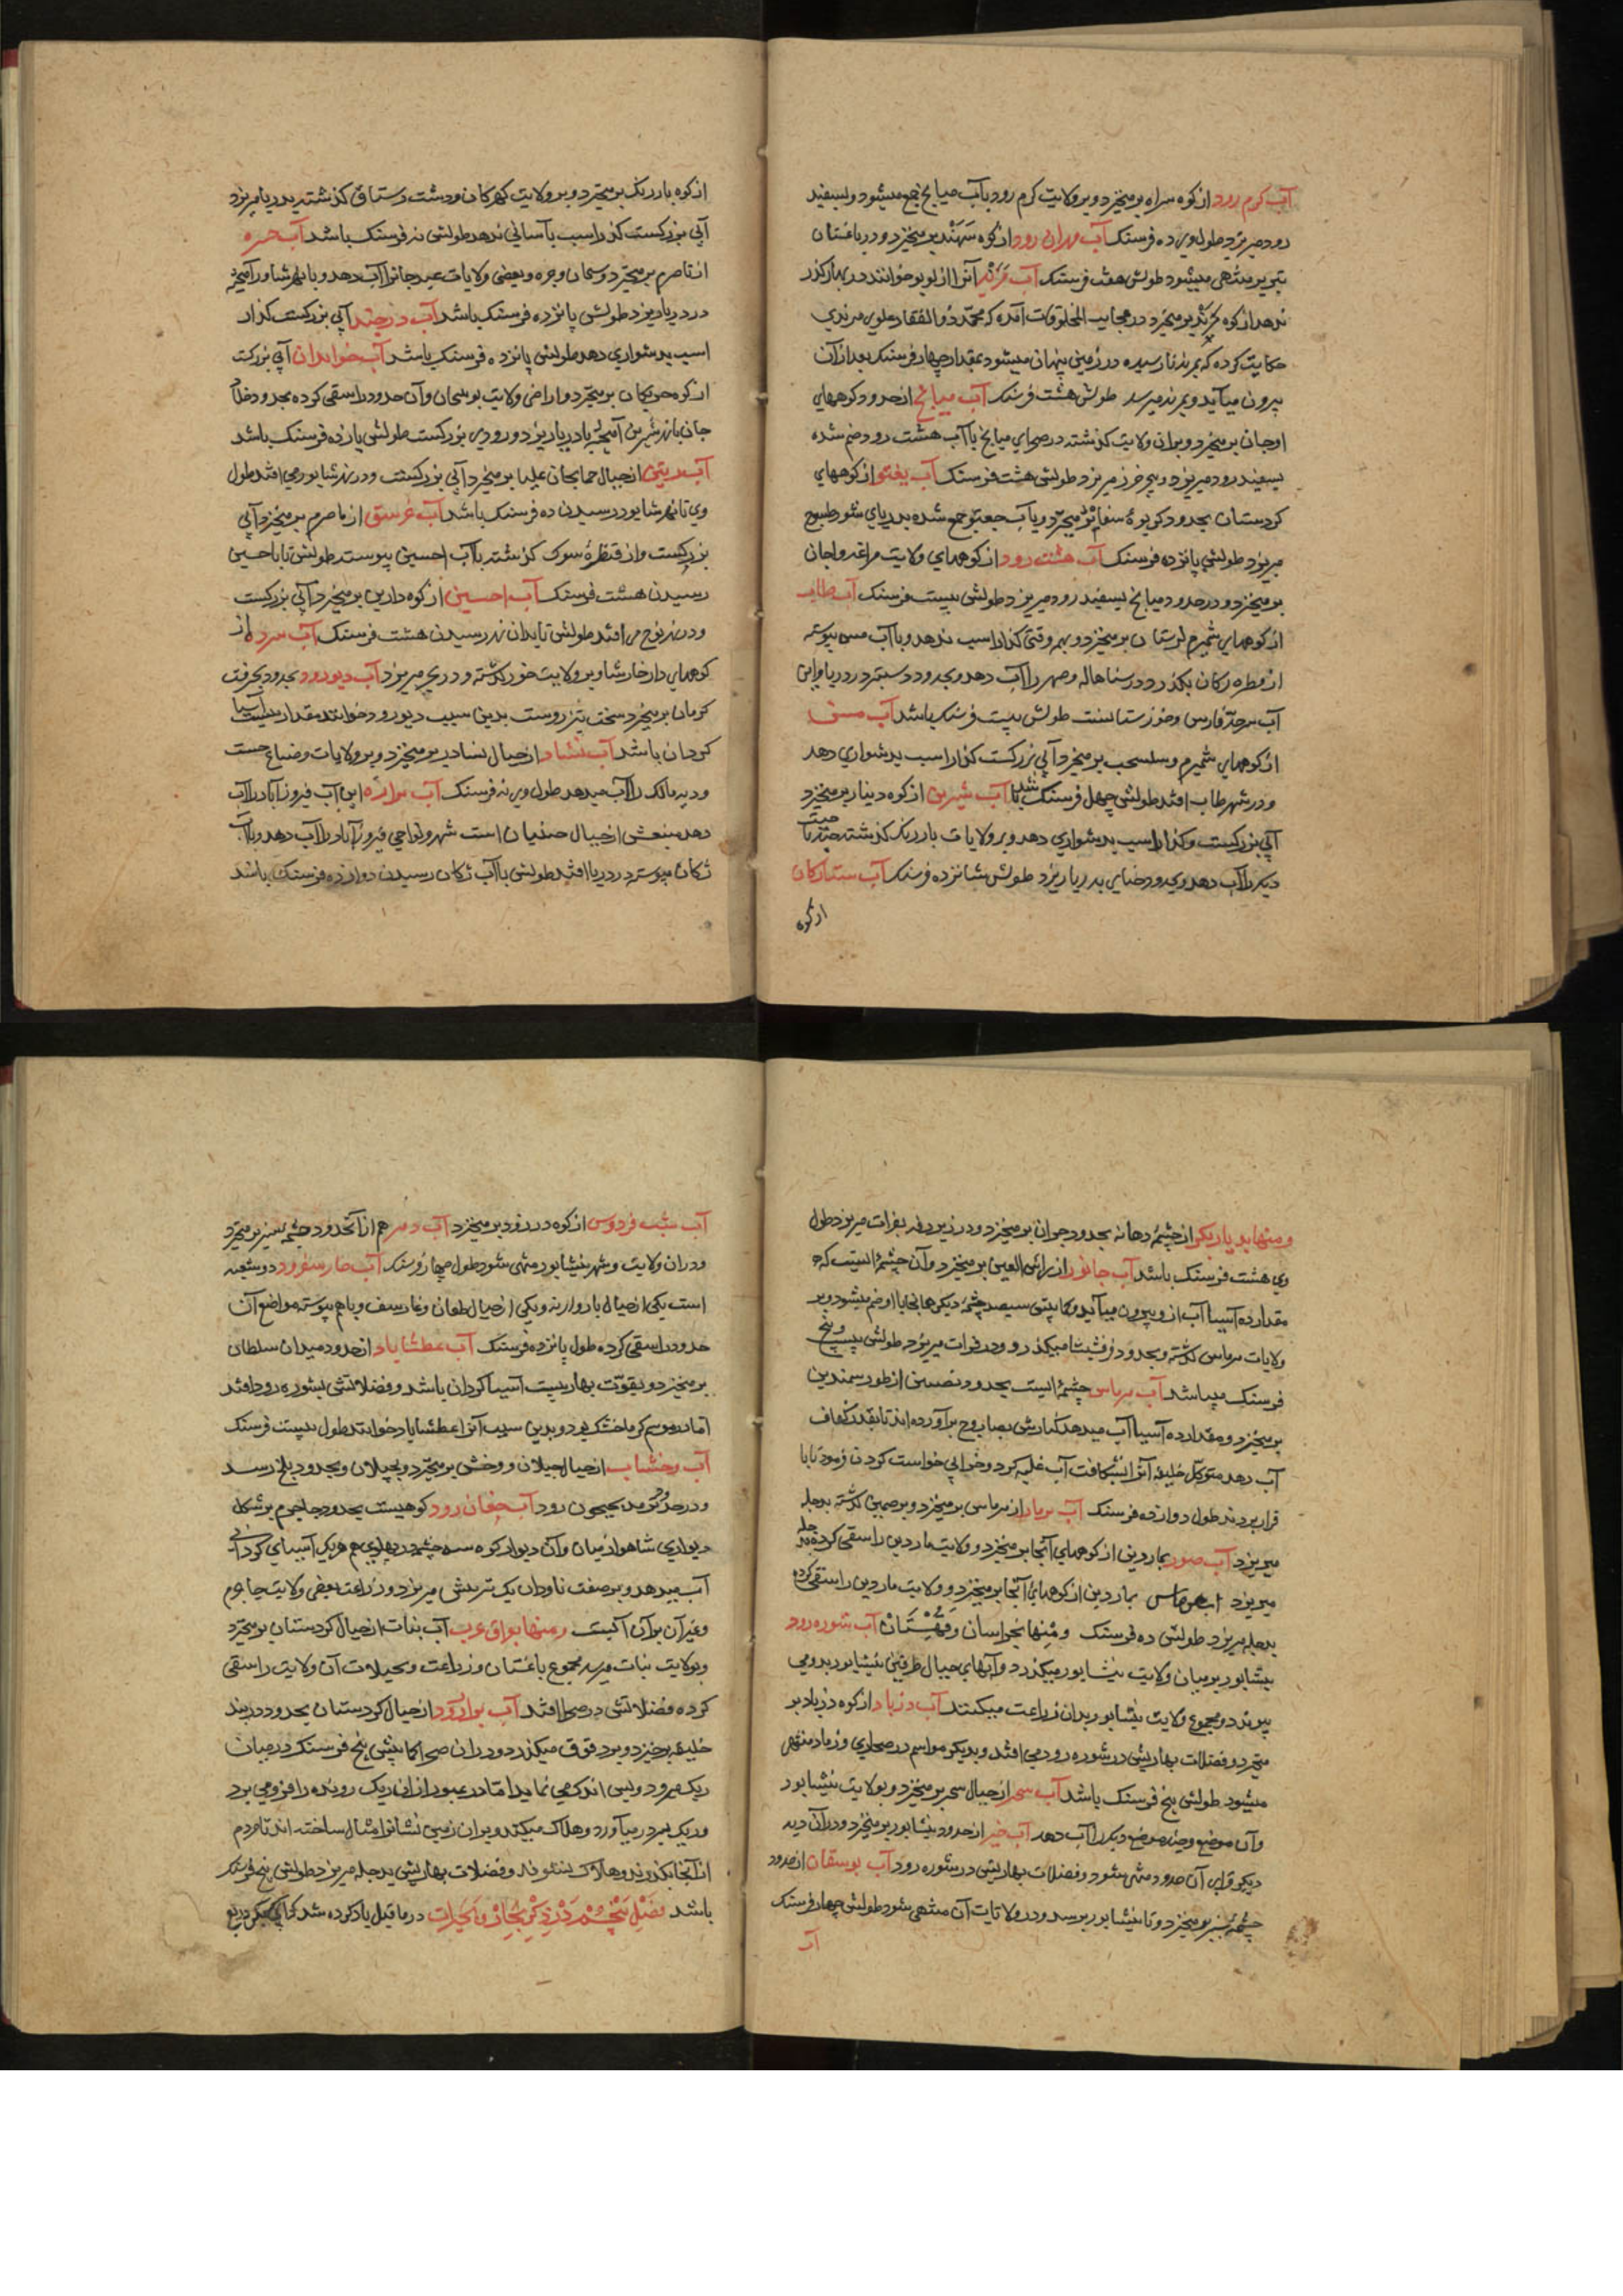 آب کرم رود از کوه سراه برمیخزد و بر ولایت کرم رود بآب میانج جمع میشود و بسفید
رود میریزد طول وی ده فرسنک آب مهران رود از کوه سهند برمیخزد و در باغستان
تبریز منتهی میشود طولش هفت فرسنک آب مرند آنرا زلوبر خوانند در بهار کذر
ندهد از کوه برمیخزد در عجایب المخلوقات آمده که محمد ذو الفقار علوی مرندی
حکایت کرده که بمرند نارسیده در زمین پنهان میشود بمقدار چهار فرسنک بعد از آن
بیرون میآید و بمرند میرسد طولش هشت فرسنک آب میانج از حدود کوههای
اوجان برمیخزد و بر ان ولایت کذشته در صحرای میانج با آب هشت رود ضم شده
بسفید رود میریزد و ببحر خزر میریزد طولش هشت فرسنک آب یغتو از کوههای
کردستان بحدود کریوهٔ برمیخزد و با آب جغتو جمع شده بدریای شور طسوج
میریزد طولش پانزده فرسنک آب هشت رود از کوههای ولایت مراغه و اجان
برمیخزد و در حدود میانج بسفید رود میریزد طولش بیست فرسنک آب طاب
از کوههای شمیرم لرستان برمیخزد و بهر وقتی کذار اسب ندهد و با آب مسن پیوسته
از قطره رکان بکذرد و را آب دهد و بحدود در دریا و این
آب سرحد فارس و خوزستانست طولش بیست فرسنک باشد آب مسن
از کوههای شمیرم و برمیخزد آبی بزرکست کذار اسب بدشواری دهد
و در شهر طاب افتد طولش چهل فرسنک باشد آب شیرین از کوه دینار برمیخزد
آبی بزرکست و کذار اسب بدشواری دهد و بر ولایات بازرنک کذشته
دیکر را آب دهد و بحدود بدریا ریزد طولش شانزده فرسنک آب ستارکان
از کوه
از کوه بازرنک برمیخزد و بر ولایت کهرکان و دشت رستاق کذشته بدریا میریزد
آبی بزرکست کذر اسب بآسانی ندهد طولش نه فرسنک باشد آب جره
از ناصرم برمیخزد و جره و بعضی ولایات را آب دهد و با نهر شاور آمیخته
در دریا ریزد طولش پانزده فرسنک باشد آب درخید آبی بزرکست کذار
اسب بدشواری دهد طولش پانزده فرسنک باشد آب خوابدان آبی بزرکست
از کوه برمیخزد و اراضی ولایت نوبنجان و آن حدود را سقی کرده بحدود
جان با نهر شیرین آمیخته بدریا ریزد و رودی بزرکست طولش پانزده فرسنک باشد
آب رتین از جبال خمایجان علیا برمیخزد آبی بزرکست و در نهر شاپور می افتد طول
وی تا نهر شاپور رسیدن ده فرسنک باشد آب خرسق از ناصرم برمیخزد آبی
بزرکست و از قنطرهٔ سوک کذشته با آب احسین پیوسته طولش تا باحسین
رسیدن هشت فرسنک آب احسین از کوه دارین برمیخزد آبی بزرکست
و در نهر توج می افتد طولش تا بدان نهر رسیدن هشت فرسنک آب سرده از
کوههای دارخارشاویر ولایت خور کذشته و در بحر میریزد آب دیورود بحدود جیرفت
کرمان برمیخزد سخت تیز روست بدین سبب دیورود خوانند مقدار بیست آسیا
کردان باشد آب نشاد از جبال نساد بر میخزد و بر ولایات و ضیاع
و دیه مالک را آب میدهد طول وی نه فرسنک آب برازه این آب فیروزآباد را آب
دهد منبعش از جبال است شهر و نواحی فیروزآباد را آب دهد و با آب
ژکان پیوسته در دریا افتد طولش با آب ژکان رسیدن دوازده فرسنک باشد
ومنها بدیار بکر از چشمهٔ دهانه بحدود حران برمیخزد و در زیر رقه بفرات میریزد طول
وی هشت فرسنک باشد آب خابور از راس العین برمیخزد و آن چشمهٔ ایست که
مقدار ده آسیا آب از و بیرون میآید و کما بیش سیصد چشمهٔ دیکر هما نجا با او ضم میشود و بر
ولایات کذشته و بحدود قرقیسا میکذرد و در فرات میریزد طولش بیست و پنج
فرسنک میباشد آب هرماس چشمهٔ ایست بحدود نصیبین از طور سمندین
برمیخزد و مقدار ده آسیا آب میدهد کنارش بصاروج برآورده اند تا بقدر کفاف
آب دهد متوکل خلیفه آنرا بشکافت آب غلبه کرد و خرابی خواست کردن فرمود تا با
قرار بردند طول دوازده فرسنک آب ثرثار از هرماس برمیخزد و بر کذشته بدجله
میریزد آب صور بماردین از کوههای آنجا برمیخزد و ولایت ماردین را سقی کرده بدجله
میریزد آب بماردین از کوههای آنجا برمیخزد و ولایت ماردین را سقی کرده
بدجله میریزد طولش ده فرسنک ومنها بخراسان وقهستان آب شوره رود
نیشابور بر میان ولایت نیشابور میکذرد و آبهای جبال طرفین نیشابور بدو می
پیوندد و مجموع ولایت نیشابور بدان زراعت میکنند آب دزباد از کوه دزباد بر
میخزد و فضلات بهاریش در شوره رود می افتد و بدیکر مواسم در صحاری و زماد منتهی
میشود طولش پنج فرسنک باشد آب سحر از جبال سحر برمیخزد و بولایت نیشابور
و آن موضع و چند موضع دیکر را آب دهد آب خیر از حدود نیشابور برمیخزد و در آن دیه
دیکر قرای آن حدود منتهی شود و فضلات بهاریش در شوره رود آب بوسقان از حدود
چشمهٔ سبز برمیخزد و تا نیشابور برسد و در ولایات آن منتهی شود طولش چهار فرسنک
آب
آب شب فردوس از کوه درزود برمیخزد آب دهر هم از آنحدود چشمه سبز برمیخزد
و در ان ولایت و شهر نیشابور منتهی شود طول چهار فرسنک آب خار سفرود دو شعبه
است یکی از جبال بادوارنه و یکی از جبال و غارسف و باهم پیوسته مواضع آن
حدود را سقی کرده طول پانزده فرسنک آب عطشاباد از حدود میدان سلطان
برمیخزد و بقوت بهار بیست آسیا کردان باشد و فضلاتش بشوره رود افتد
اما در موسم کرما خشک بود و بدین سبب آنرا عطشاباد خوانند طول بیست فرسنک
آب وخشاب از جبال جیلان و وخش برمیخزد و بجیلان و بحدود بلخ رسد
و در حدود ترمد بجیحون رود آب جغان رود کوهیست بحدود جاجرم بر شکل
دیواری شاهوار نمایان و آن دیوار کوه سه چشمه در پهلوی هم هریک آسیای کردانی
آب میدهد و بر صفت ناودان بیک تیربش میریزد و زراعت بعضی ولایت جاجرم
و غیر آن بر آن آبست ومنها بعراق عرب آب نبات از جبال کردستان برمیخزد
و بولایت نبات میرسد مجموع باغستان و زراعت و نخیلات آن ولایت را سقی
کرده فضلاتش در صحرا افتد آب براز رود از جبال کردستان بحدود دربند
خلیفه برخیزد و بر دقوق میکذرد و در ان صحرا کمابیش پنج فرسنک در میان
ریک میرود و بس اندک می نماید اما در عبور از ان ریک رونده را فرومی برد
و ریک بسر در میآورد و هلاک میکند و بر ان زمین نشانها مثال ساخته اند تا مردم
از آنجا بکذرند و هلاک نشوند و فضلات بهاریش بدجله میریزد طولش پنج فرسنک
باشد فصل پنجم در ذکر بحار و بحیرات در ما قبل یاد کرده شد که آب دیکر در ربع